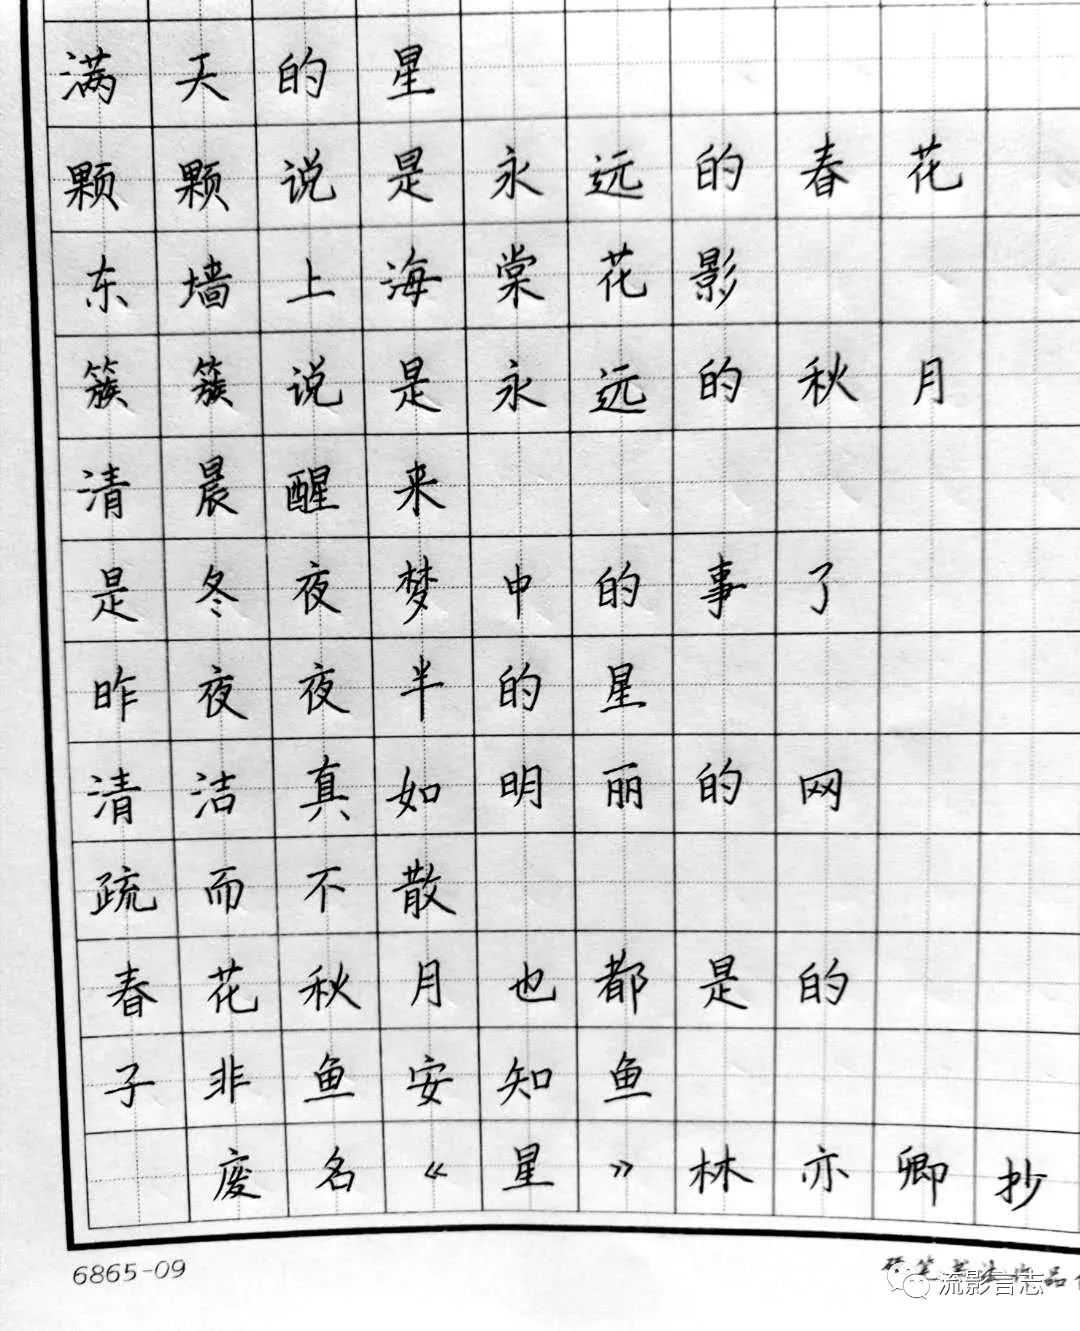 满天的星
颗颗说是永远的春花
东墙上海棠花影
簇簇说是永远的秋月
清晨醒来
是冬夜梦中的事了
昨夜夜半的星
清洁真如明丽的网
疏而不散
春花秋月也都是的
子非鱼安知鱼
废名《星》林亦卿抄
6865-09
品
流影言志